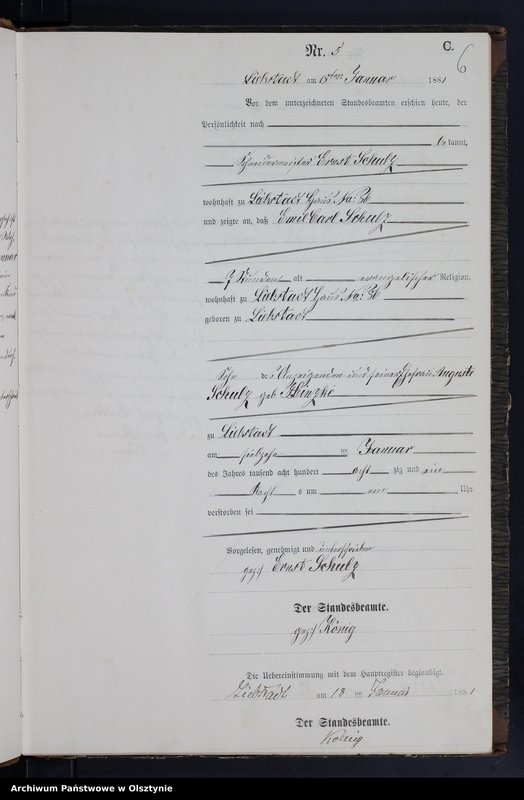 Nr. 5
C.
6
Liebstadt am 18ten Januar 1881
Vor dem unterzeichneten Standesbeamten erschien heute, der
Persönlichkeit nach
bekannt,
Schneidermeister Ernst Schulz
wohnhaft zu Liebstadt Haus No:
und zeigte an, daß Emil Carl Schulz
7 Stunden alt evangelischer Religion,
wohnhaft zu Liebstadt Haus No:
geboren zu Liebstadt
Sohn des Anzeigenden und seiner Ehefrau Auguste
Schulz geb.
zu Liebstadt
am Januar
des Jahres tausend acht hundert acht zig und ein
Nacht s um ein Uhr
verstorben sei
Vorgelesen, genehmigt und unterschrieben
gez:) Ernst Schulz
Der Standesbeamte.
gez:) König
Die Uebereinstimmung mit dem Hauptregister beglaubigt.
Liebstadt am 18 ten Januar 1881
Der Standesbeamte.
König
Archiwum Państwowe w Olsztynie